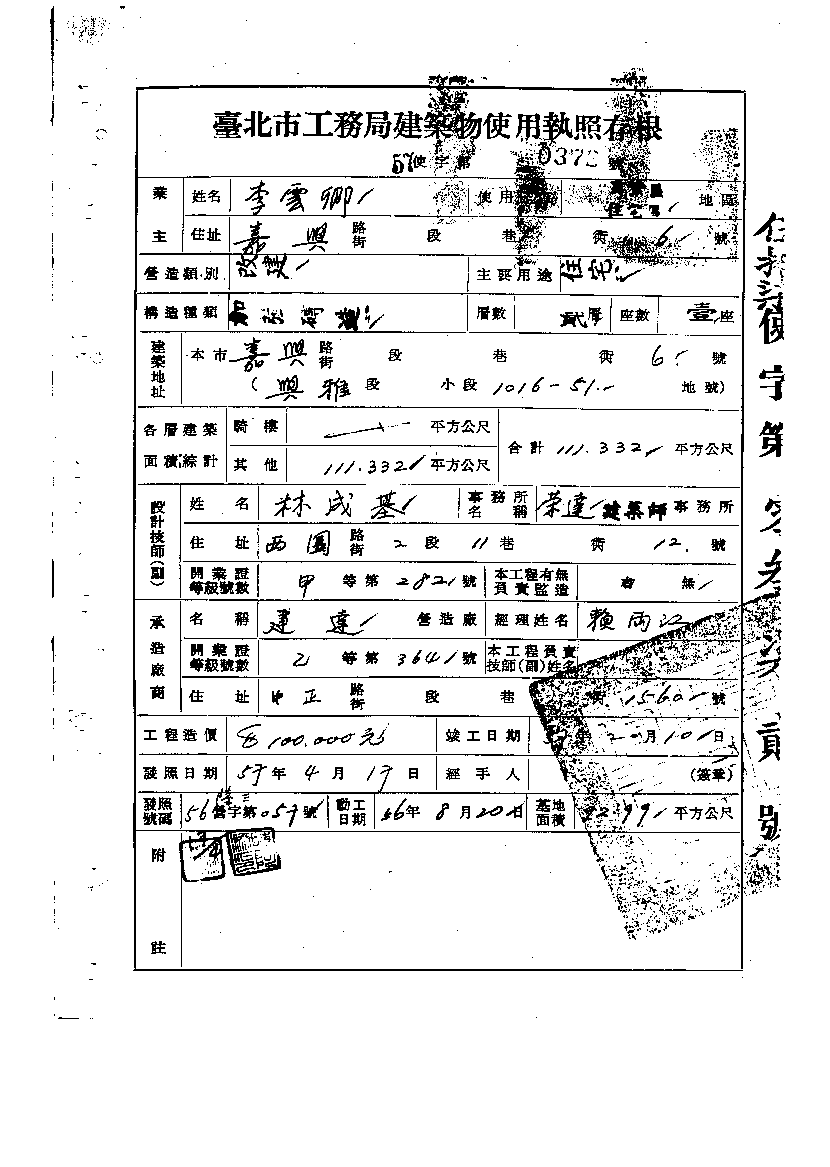 臺北市工務局建築物使用執照存根
57使字第 037 號
業主 姓名 李雲卿 使用 地區
住址 嘉興 路街 段 巷 衖 6 號
營造類別 改建 主要用途 住宅
構造種類 加強磚造 層數 貳層 座數 壹座
建築地址 本市 嘉興 路街 段 巷 衖 6 號
(興雅段 小段 1016-51 地號)
各層建築面積綜計 騎樓 平方公尺 合計 111.332 平方公尺
其他 111.332 平方公尺
設計技師(副) 姓名 林成基 事務所名稱 榮達建築師事務所
住址 西園 路街 2段 11巷 衖 12 號
開業證等級號數 甲等第2821號 本工程有無負責監造 有 無
承造廠商 名稱 建達 營造廠 經理姓名 賴雨
開業證等級號數 乙等第3641號 本工程負責技師(副)姓名
住址 中正 路街 段 巷 衖 1560 號
工程造價 100,000元 竣工日期 年 2月10日
發照日期 57年4月17日 經手人 (簽章)
發照號碼 56營字第057號 動工日期 56年8月20日 基地面積 99 平方公尺
附註
使字第 號